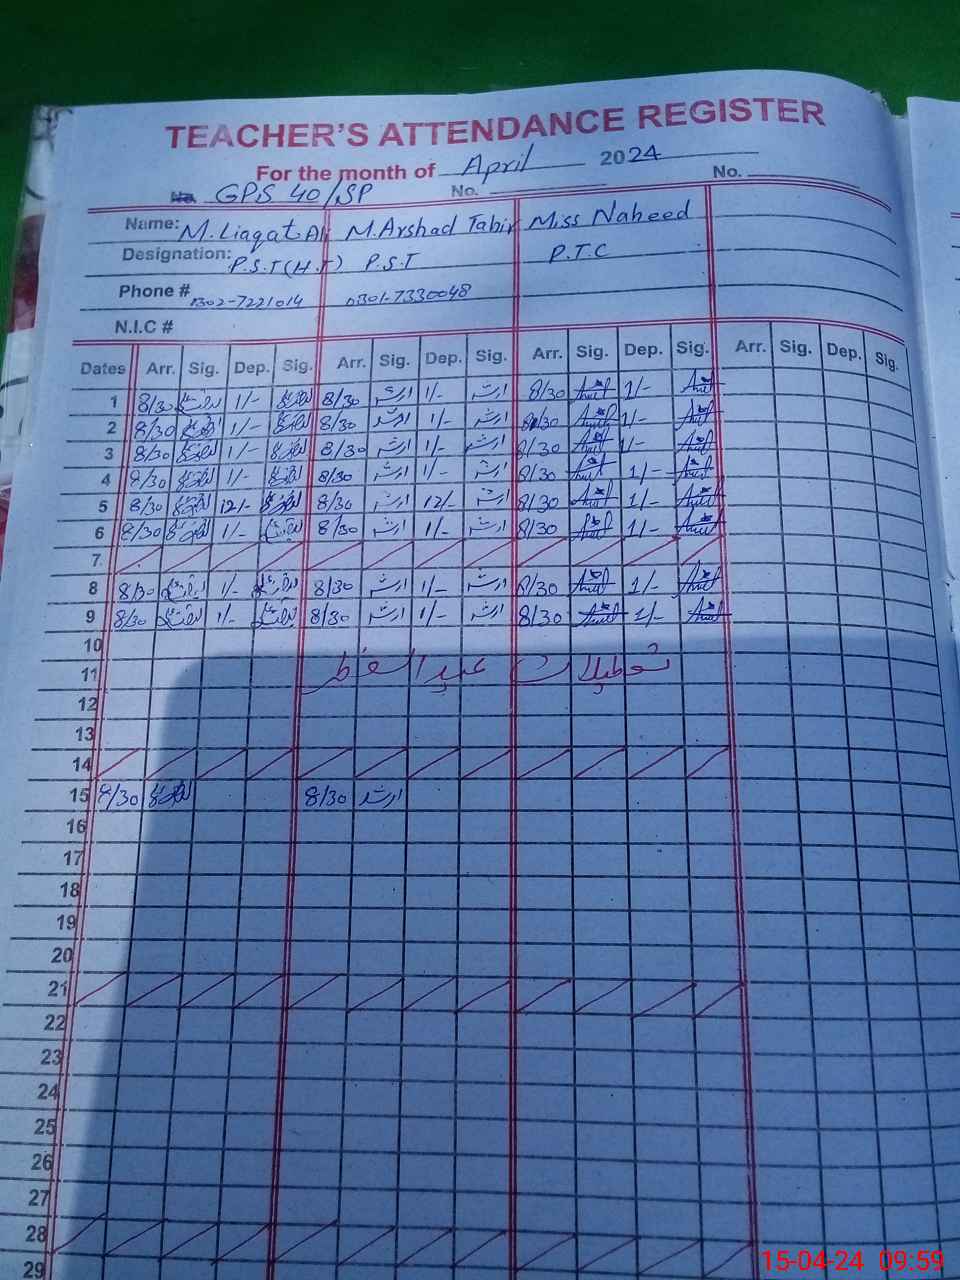 TEACHER'S ATTENDANCE REGISTER
For the month of April 2024
No. GPS 40/SP No. No.
Name: M. Liaqat Ali M. Arshad Tahir Miss Naheed
Designation: P.S.T (H.T) P.S.T P.T.C
Phone # 0302-7221014 0301-7330048
N.I.C #
Dates Arr. Sig. Dep. Sig. Arr. Sig. Dep. Sig. Arr. Sig. Dep. Sig. Arr. Sig. Dep. Sig.
1 8/30 1/- 8/30 ارشد 1/- ارشد 8/30 1/-
2 8/30 1/- 8/30 ارشد 1/- ارشد 8/30 1/-
3 8/30 1/- 8/30 ارشد 1/- ارشد 8/30 1/-
4 8/30 1/- 8/30 ارشد 1/- ارشد 8/30 1/-
5 8/30 12/- 8/30 ارشد 12/- ارشد 8/30 1/-
6 8/30 1/- 8/30 ارشد 1/- ارشد 8/30 1/-
7
8 8/30 1/- 8/30 ارشد 1/- ارشد 8/30 1/-
9 8/30 1/- 8/30 ارشد 1/- ارشد 8/30 1/-
10
11 تعطیلات عید الفطر
12
13
14
15 8/30 8/30 ارشد
16
17
18
19
20
21
22
23
24
25
26
27
28
29
15-04-24 09:59